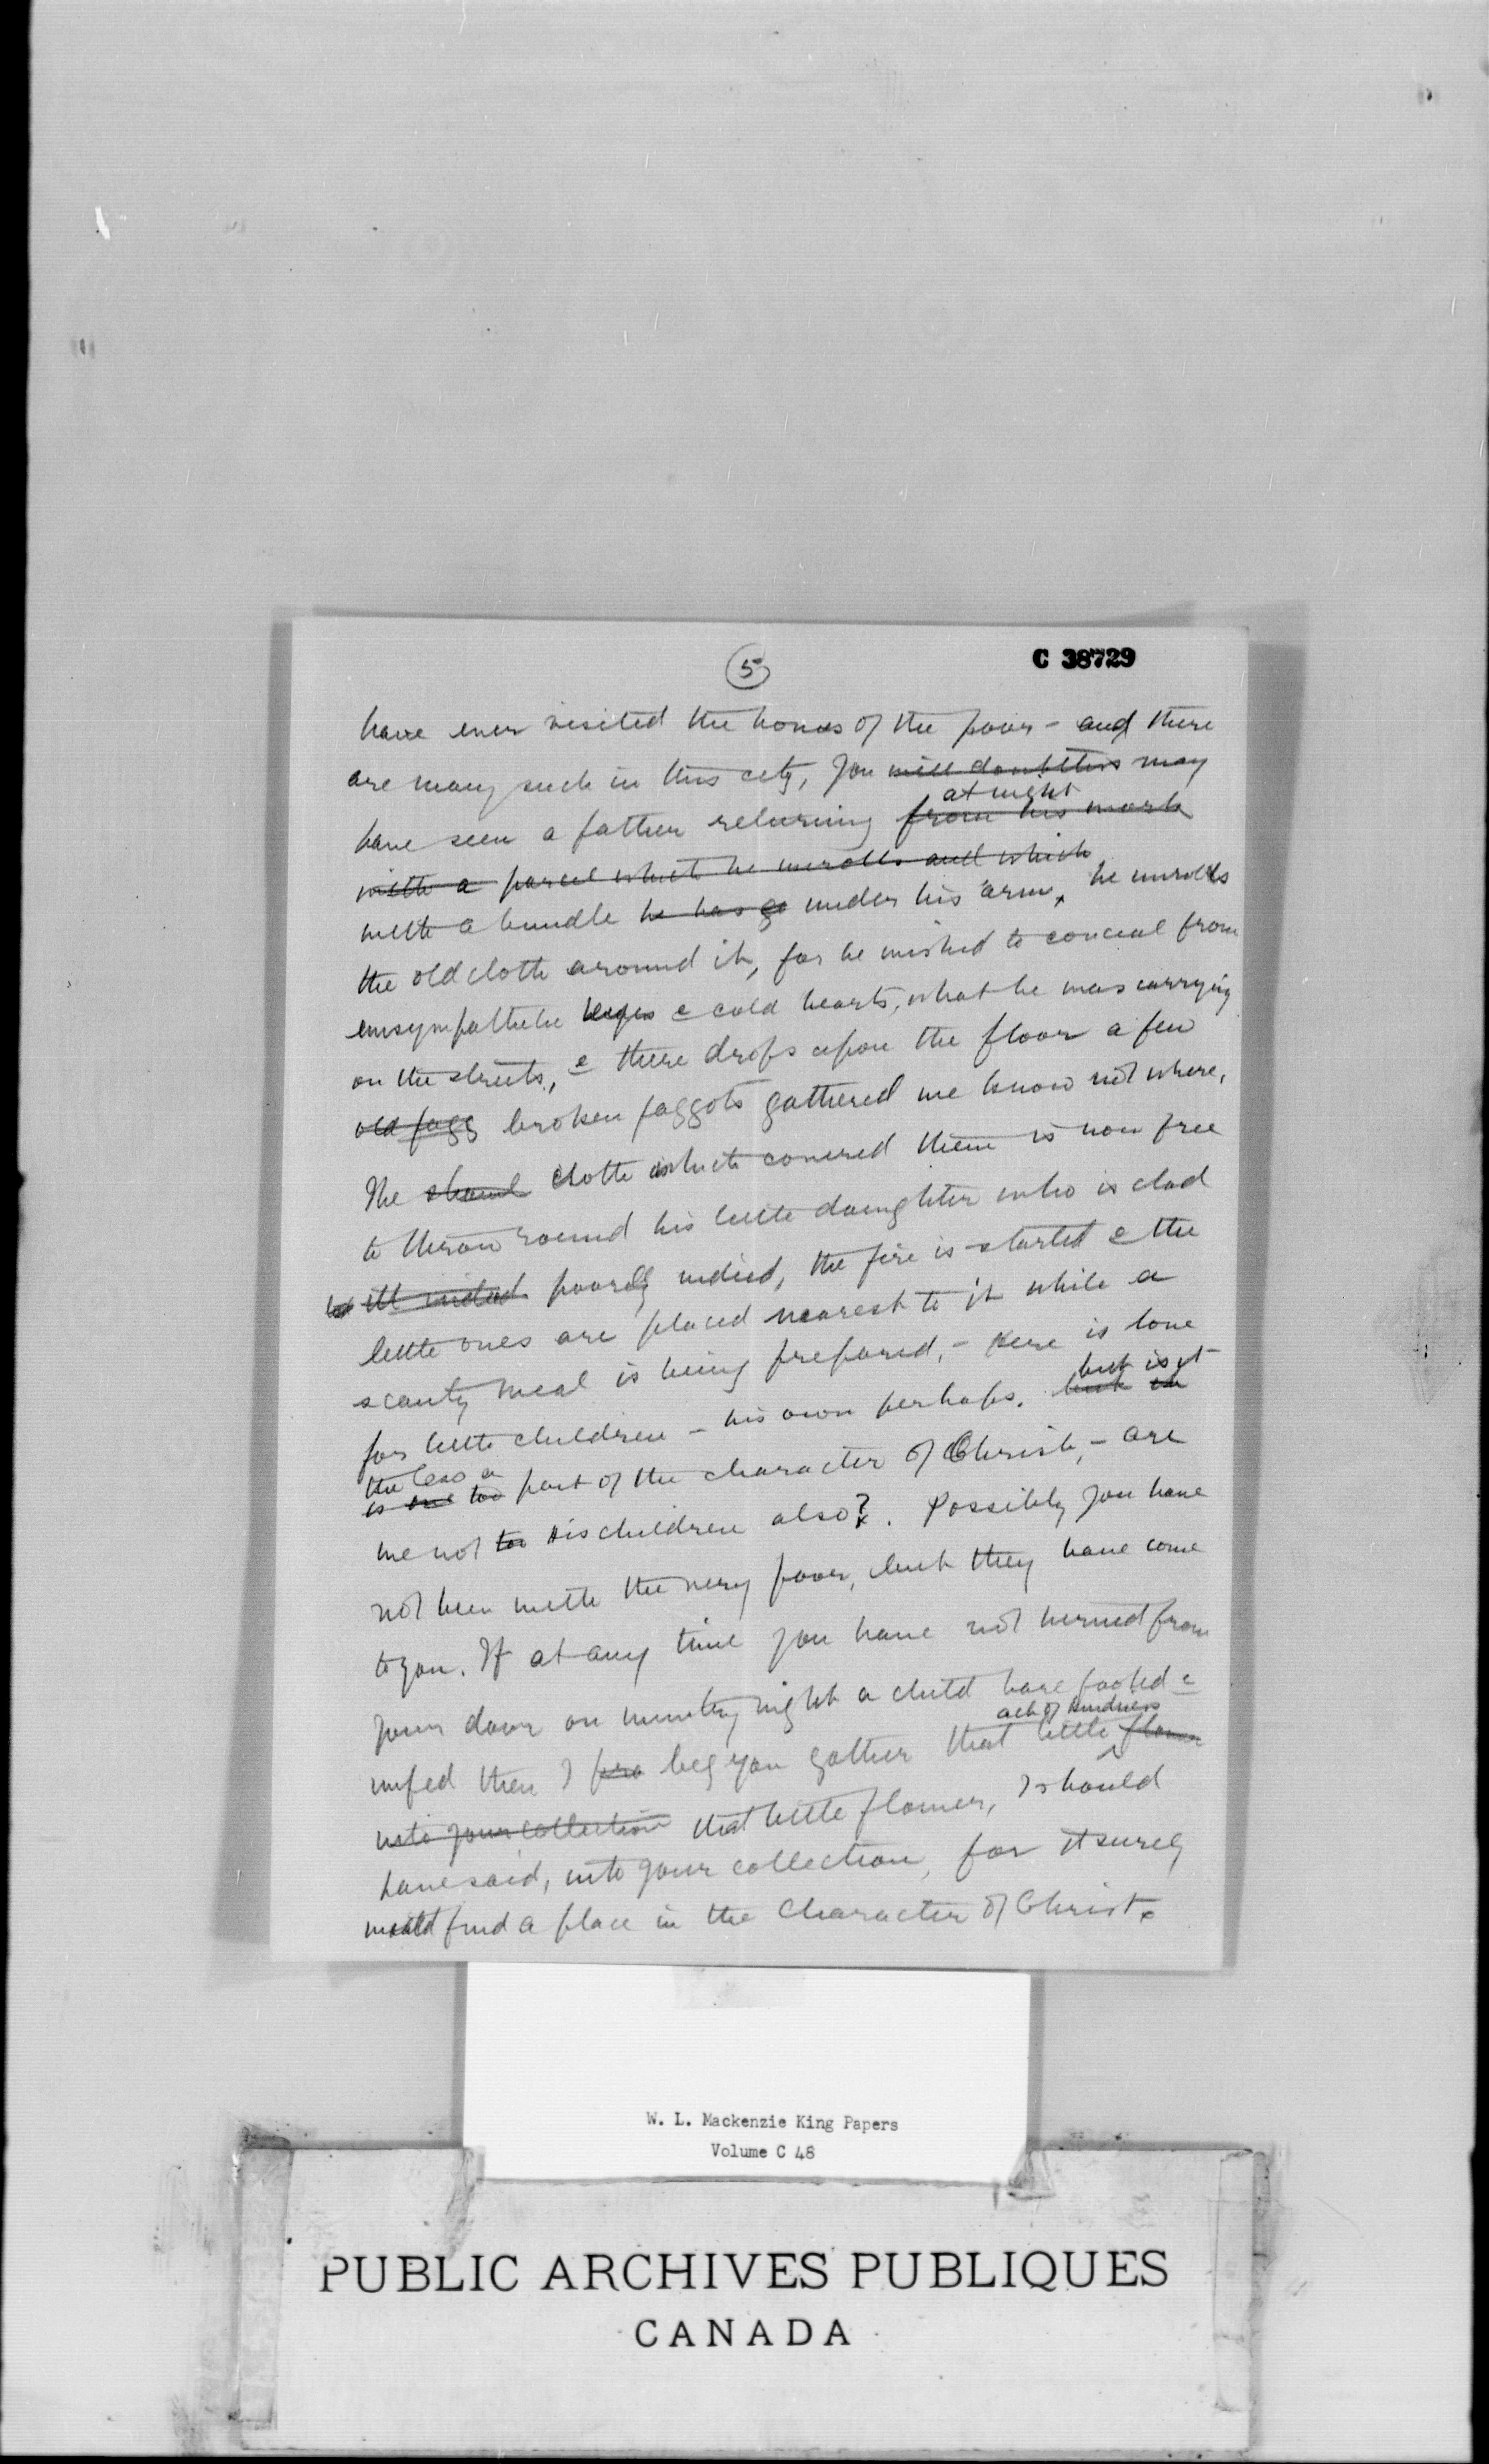 5
C 38729
have ever visited the homes of the poor - and there
are many such in this city, you will doubtless may
at night
have seen a father returning from his work
with a parcel which he unrolls and which
with a bundle he has go under his arm, he unrolls
the old cloth around it, for he wished to conceal from
unsympathetic eyes & cold hearts, what he was carrying
on the streets, & there drops upon the floor a few
old fagg broken faggots gathered we know not where,
The shawl cloth which covered them is now free
to throw round his little daughter who is clad
ill indeed poorly indeed, the fire is started & the
little ones are placed nearest to it while a
scanty meal is being prepared, - Here is love
but is it
for little children - his own perhaps. but is
the less a
is one too part of the character of Christ, - are
we not to His children also?. Possibly you have
not been with the very poor, but they have come
to you. If at any time you have not turned from
your door on wintry night a child bare footed &
act of kindness
unfed then I pra beg you gather that little flower
into your collection that little flower, I should
have said, into your collection, for it surely
would find a place in the Character of Christ.
W. L. Mackenzie King Papers
Volume C 48
PUBLIC ARCHIVES PUBLIQUES
CANADA